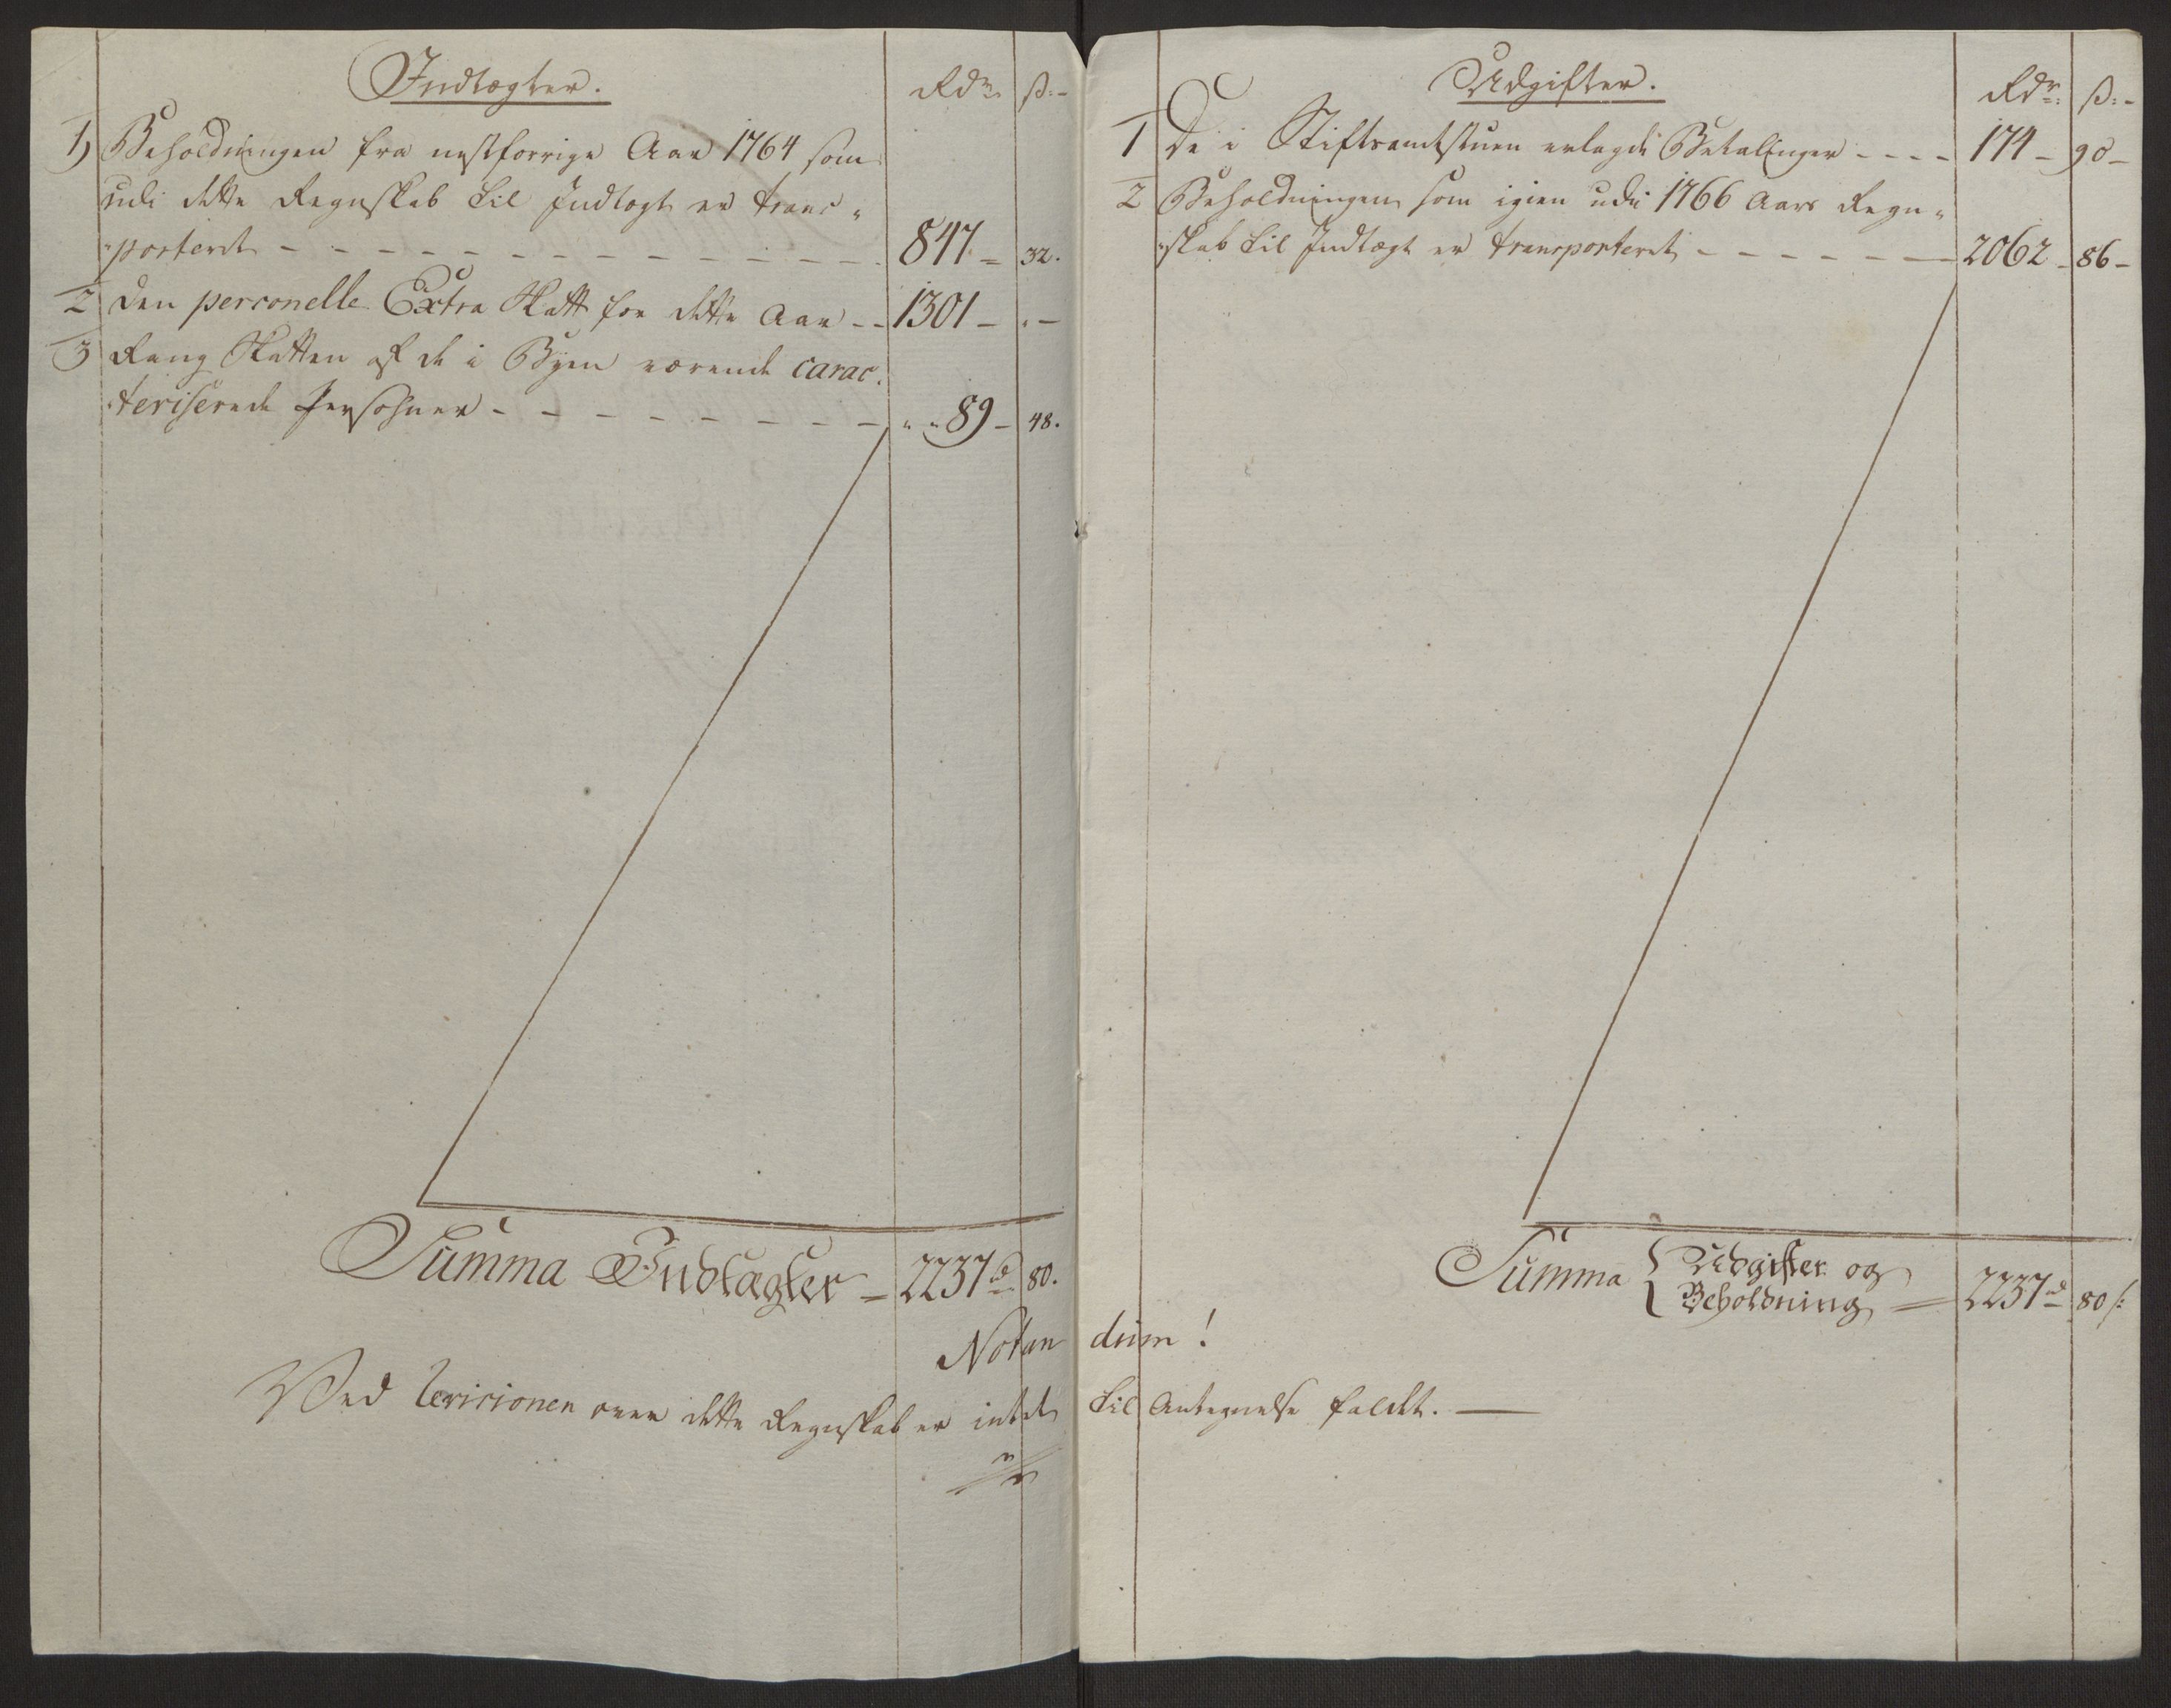 Indtægter.
Rdr. ß.
1) Beholdningen fra nestforrige Aar 1764 som
udi dette Regnskab til Indtægt er trans„
„porteret - - - 847 - 32.
2 Den personelle Extra Skatt for dette Aar - - 1301 - „ -
3 Rang Skatten af de i Byen værende carac„
„teriserede Personer - - - „ „ 89 - 48.
Summa Indtægter = 2237 rd 80.
Udgifter.
Rdr. ß.
1 De i Stiftsamtstuen erlagde Betalinger - - - - 174 - 90 -
2 Beholdningen som igien udi 1766 Aars Regn„
„skab til Indtægt er transporteret - - - 2062 - 86 -
Summa { Udgifter og
Beholdning = 2237 rd 80 ß
Notandum!
Ved Revisionen over dette Regnskab er intet til Antegnelse faldet. —